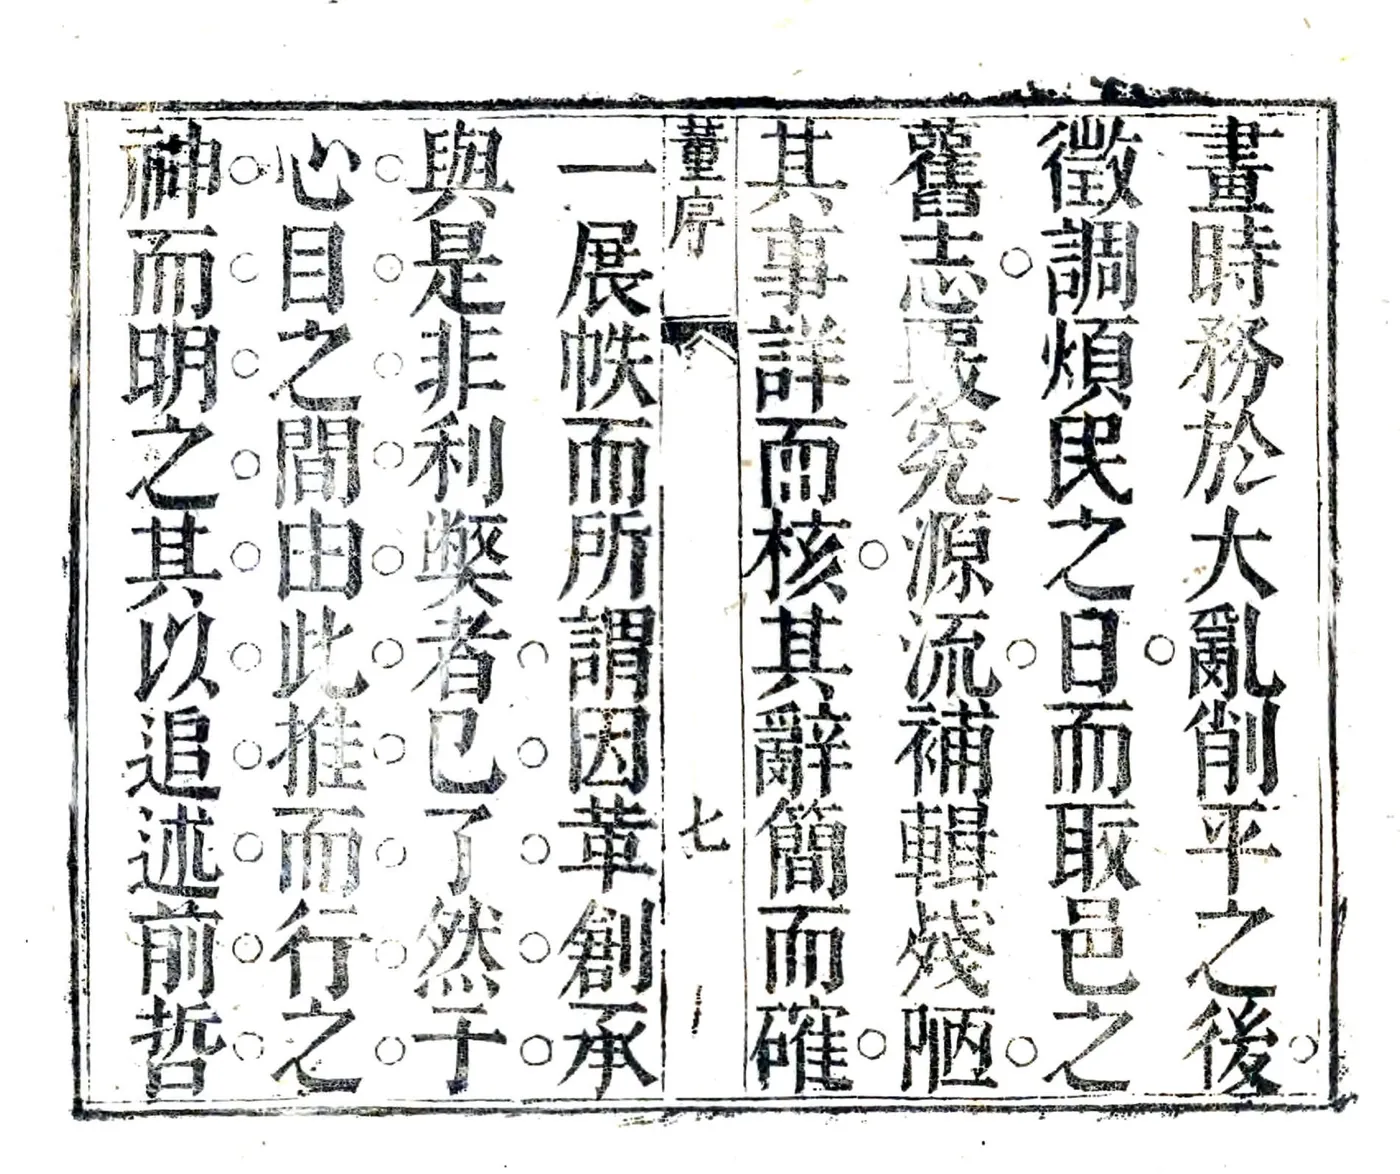 畫時務於大亂削平之後
徵調煩民之日而取邑之
舊志究源流補輯殘陋
其事詳而核其辭簡而確
董序
七
一展帙而所謂因革創承
與是非利獘者已了然于
心目之間由此推而行之
神而明之其以追述前哲